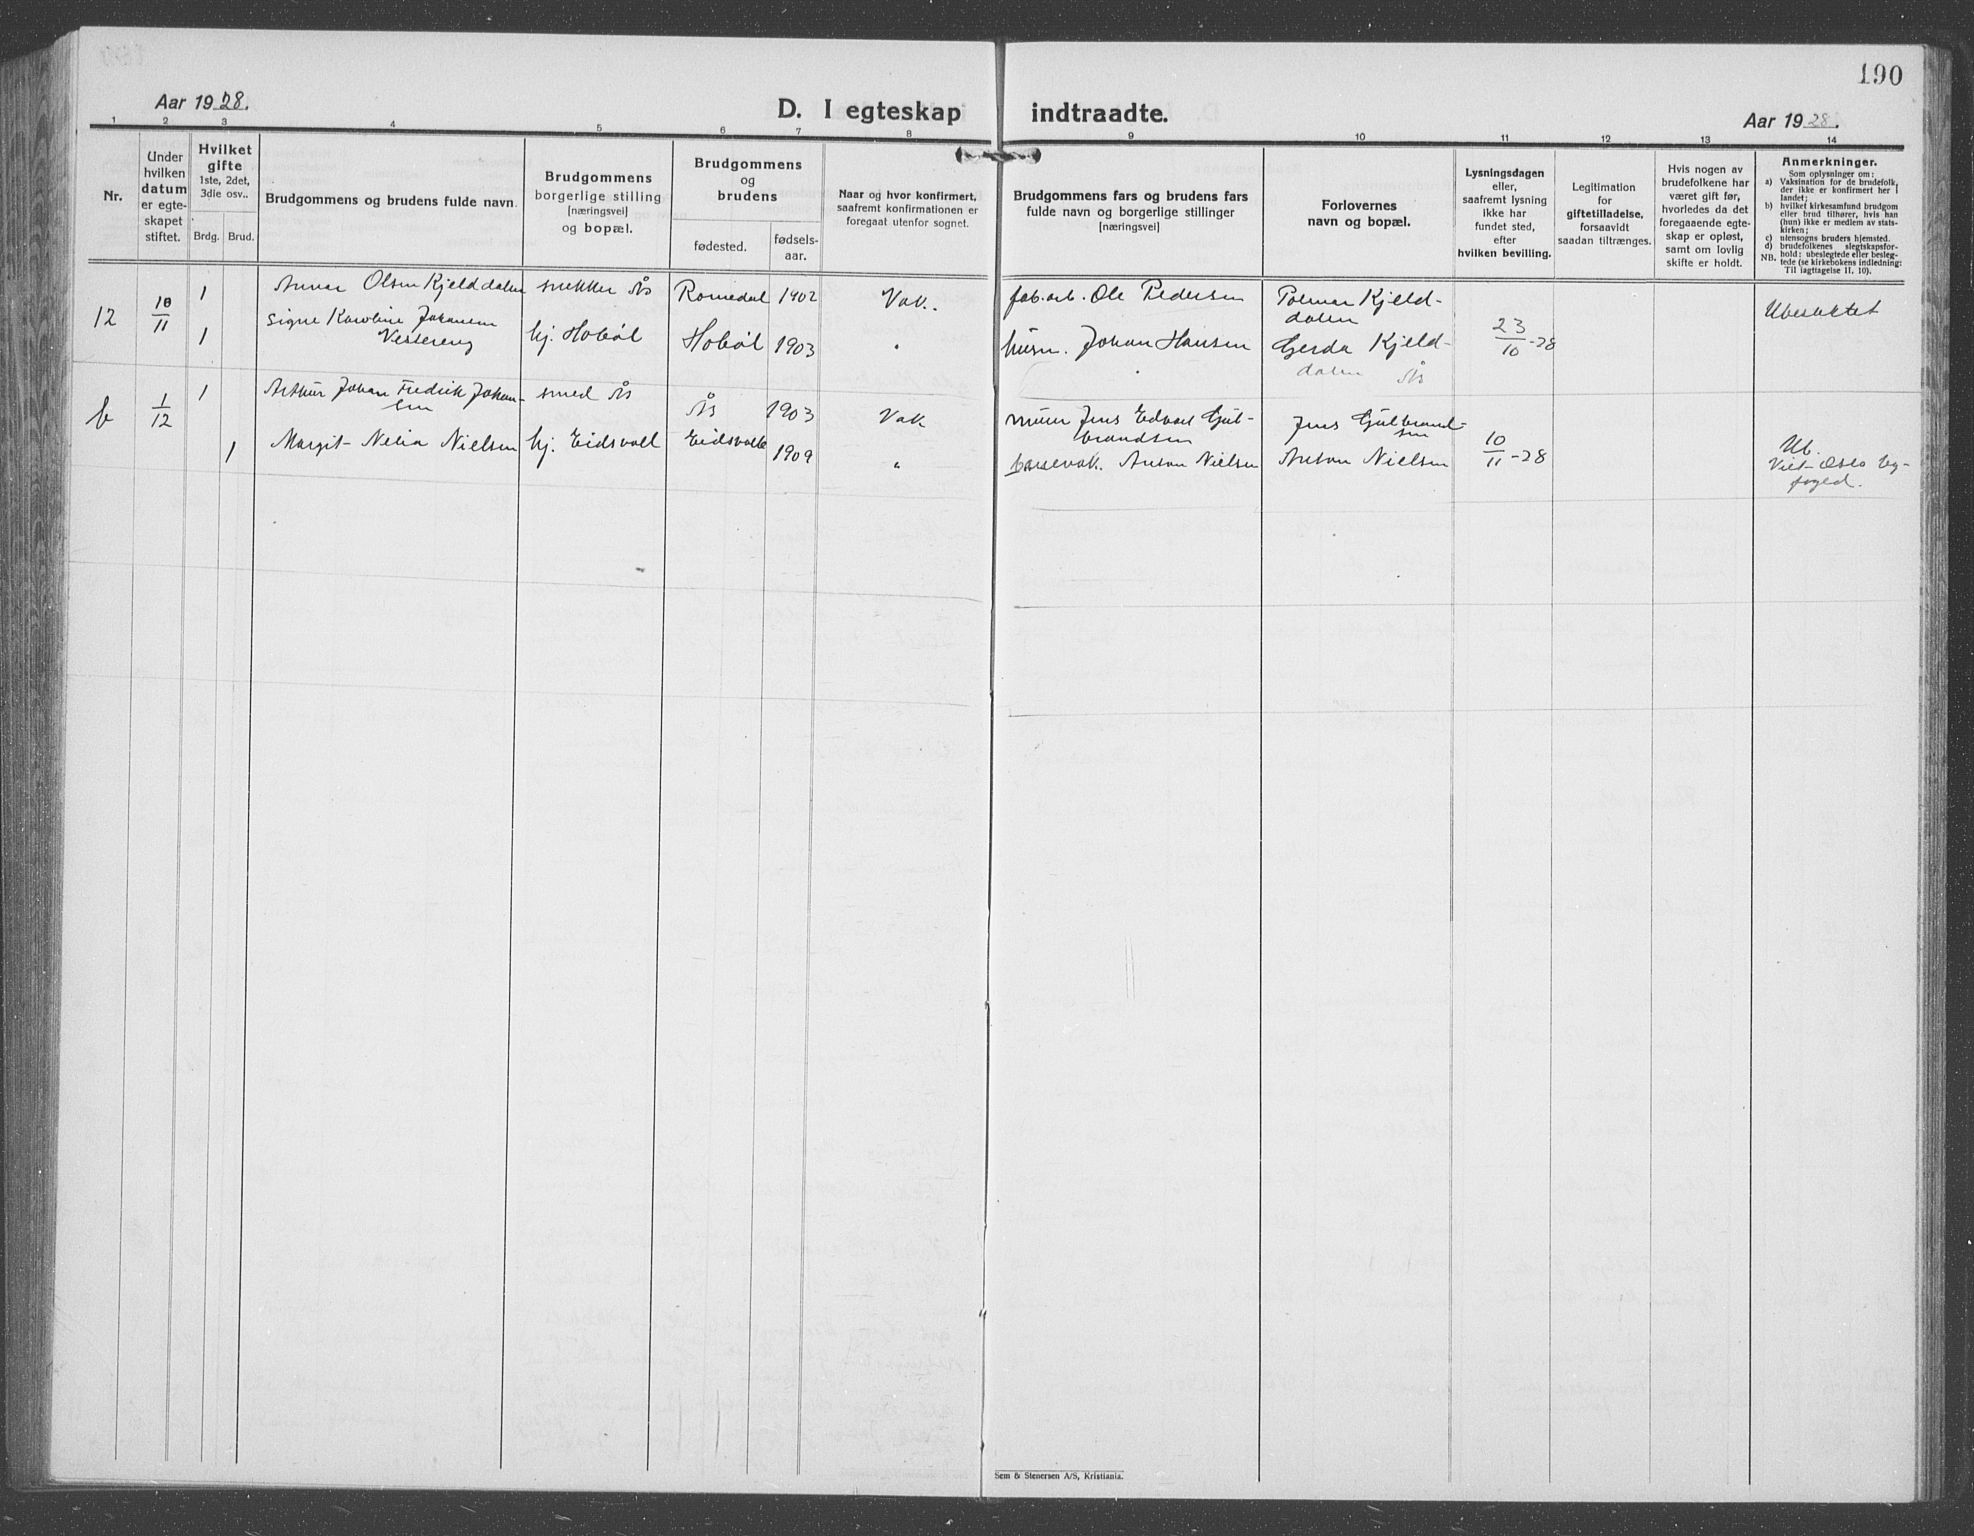 190
Aar 1928.
D. I egteskap indtraadte.
Aar 1928.
1 2 3 4 5 6 7 8 9 10 11 12 13 14
Nr.
Under
hvilken
datum
er egte-
skapet
stiftet.
Hvilket
gifte
1ste, 2det,
3die osv..
Brdg. Brud.
Brudgommens og brudens fulde navn.
Brudgommens
borgerlige stilling
[næringsvei]
og bopæl.
Brudgommens
og
brudens
fødested.
fødsels-
aar.
Naar og hvor konfirmert,
saafremt konfirmationen er
foregaat utenfor sognet.
Brudgommens fars og brudens fars
fulde navn og borgerlige stillinger
[næringsvei]
Forlovernes
navn og bopæl.
Lysningsdagen
eller,
saafremt lysning
ikke har
fundet sted,
efter
hvilken bevilling.
Legitimation
for
giftetilladelse,
forsaavidt
saadan tiltrænges.
Hvis nogen av
brudefolkene har
været gift før,
hvorledes da det
foregaaende egte-
skap er opløst,
samt om lovlig
skifte er holdt.
Anmerkninger.
Som oplysninger om:
a) Vaksination for de brudefolk,
der ikke er konfirmert her i
landet;
b) hvilket kirkesamfund brudgom
eller brud tilhører, hvis han
(hun) ikke er medlem av stats-
kirken;
c) utensogns bruders hjemsted.
d) brudefolkenes slegtskapsfor-
hold: ubeslegtede eller besleg-
NB. tede (se kirkebokens indledning:
Til iagttagelse II, 10).
12 10/11 1 Olsen Kjelddalen snekker Ås Romedal 1902 Vak. fab.arb. Ole Pedersen Kjeld-
dalen
Signe Karoline Johansen
Vestereng
1 hj. Hobøl Hobøl 1903 " husm. Johan Hansen Gerda Kjeld-
dalen Ås
23/10-28
Ubeslektet
b 1/12 1 Arthur Johan Fredrik Johan-
sen
smed Ås Ås 1903 Vak murer Jens Edvart Gul-
brandsen
Jens Gulbrand-
sen
1 Margit Nelia Nielsen hj. Eidsvoll Eidsvoll 1909 " Anton Nielsen Anton Nielsen
10/11-28
Ub.
Viet Oslo by-
foged.
Sem & Stenersen A/S, Kristiania.